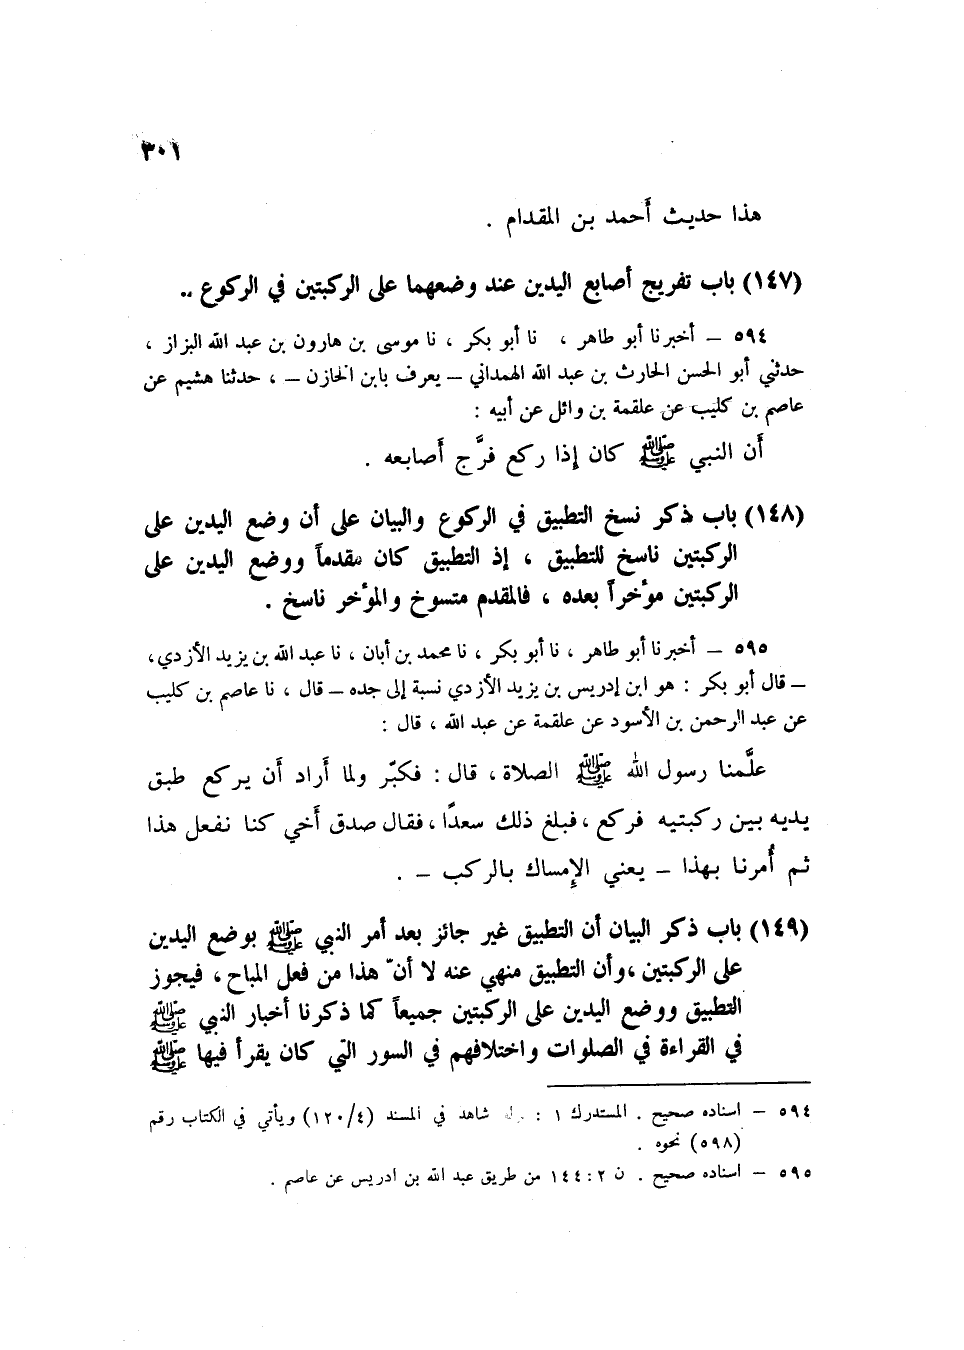 ٣٠١
هذا حديث أحمد بن المقدام .
(١٤٧) باب تفريج أصابع اليدين عند وضعهما على الركبتين في الركوع ..
٥٩٤ – أخبرنا أبو طاهر ، نا أبو بكر ، نا موسى بن هارون بن عبد الله البزاز ،
حدثني أبو الحسن الحارث بن عبد الله الهمداني – يعرف بابن الخازن – ، حدثنا هشيم عن
عاصم بن كليب عن علقمة بن وائل عن أبيه :
أن النبي ﷺ كان إذا ركع فرَّج أصابعه .
(١٤٨) باب ذكر نسخ التطبيق في الركوع والبيان على أن وضع اليدين على
الركبتين ناسخ للتطبيق ، إذ التطبيق كان مقدماً ووضع اليدين على
الركبتين مؤخراً بعده ، فالمقدم متسوخ والمؤخر ناسخ .
٥٩٥ – أخبرنا أبو طاهر ، نا أبو بكر ، نا محمد بن أبان ، نا عبد الله بن يزيد الأزدي ،
– قال أبو بكر : هو ابن إدريس بن يزيد الأزدي نسبة إلى جده – قال ، نا عاصم بن كليب
عن عبد الرحمن بن الأسود عن علقمة عن عبد الله ، قال :
علَّمنا رسول الله ﷺ الصلاة ، قال : فكبّر ولما أراد أن يركع طبق
يديه بين ركبتيه فركع ، فبلغ ذلك سعدًا ، فقال صدق أخي كنا نفعل هذا
ثم أُمرنا بهذا – يعني الإمساك بالركب – .
(١٤٩) باب ذكر البيان أن التطبيق غير جائز بعد أمر النبي ﷺ بوضع اليدين
على الركبتين ، وأن التطبيق منهي عنه لا أنّ هذا من فعل المباح ، فيجوز
التطبيق ووضع اليدين على الركبتين جميعاً كما ذكرنا أخبار النبي ﷺ
في القراءة في الصلوات واختلافهم في السور التي كان يقرأ فيها ﷺ
٥٩٤ – اسناده صحيح . المستدرك ١ : شاهد في المسند (٤/١٢٠) ويأتي في الكتاب رقم
(٥٩٨) نحوه .
٥٩٥ – اسناده صحيح . ن ٢ : ١٤٤ من طريق عبد الله بن ادريس عن عاصم .